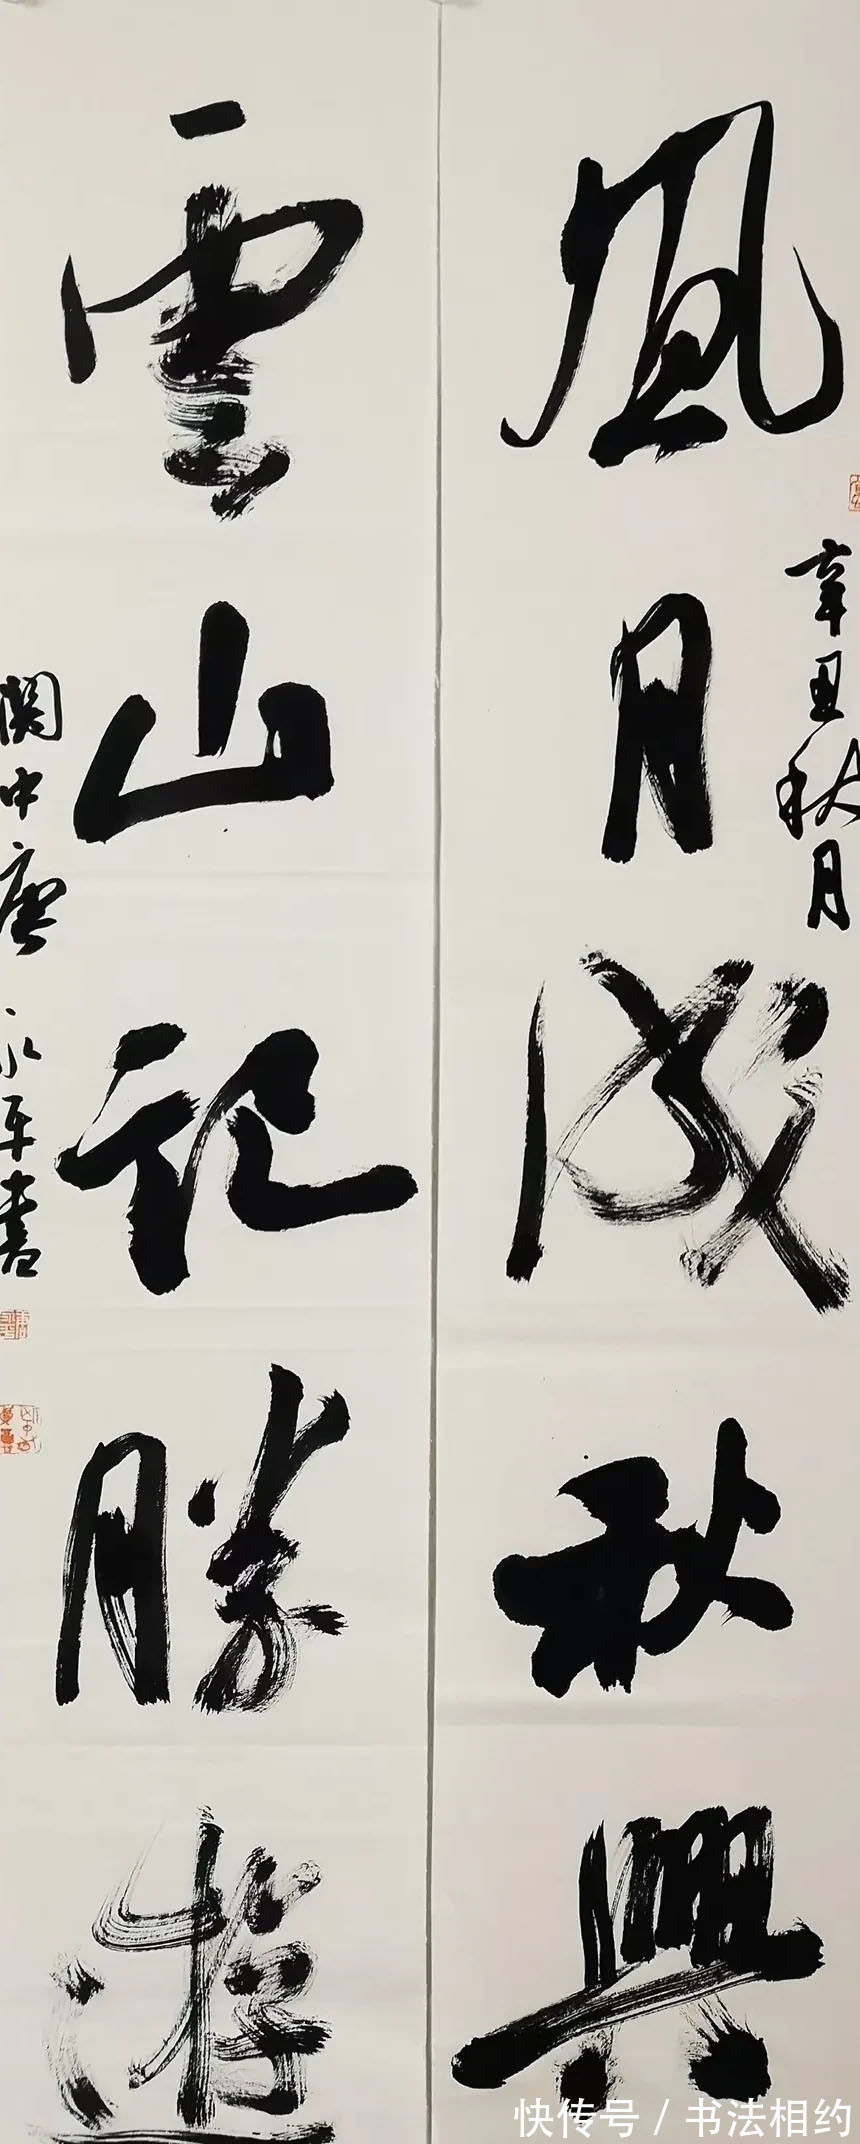 風月成秋興
辛丑秋月
雲山記勝遊
關中唐永平書
快传号 / 书法相约